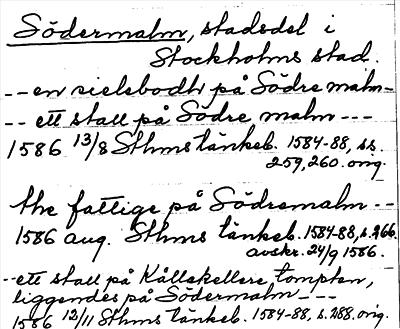 Södermalm, stadsdel i
Stockholms stad.
--en sielebodh på Södre malm--
-- ett stall på Södre malm ---
1586 13/8 Sthms tänkeb. 1584-88, ss.
259, 260. orig.
the fattige på Södremalm --
1586 aug. Sthms tänkeb. 1584-88, s. 266.
avskr. 24/9 1586.
--ett stall på Kållakellere tompten,
liggendes på Södermalm ---
1586 12/11 Sthms tänkeb. 1584-88, s. 288. orig.